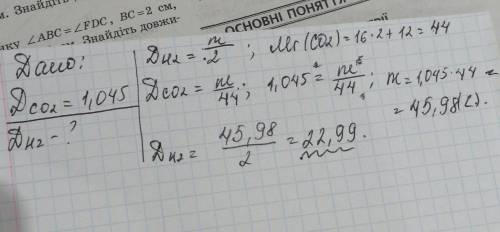 м. Знайдіть
нку ∠ABC = ∠FDC, BC = 2 см,
Знайдіть довжи-
ОСНОВНІ ПОНЯТТЯ
Дано:
Dco2 = 1,045
Dн2 - ?
Dн2 = m/2 ; Mr(CO2) = 16·2+12 = 44
Dco2 = m/44 ; 1,045 = m/44 ; m = 1,045·44 =
= 45,98 (г).
Dн2 = 45,98/2 = 22,99.